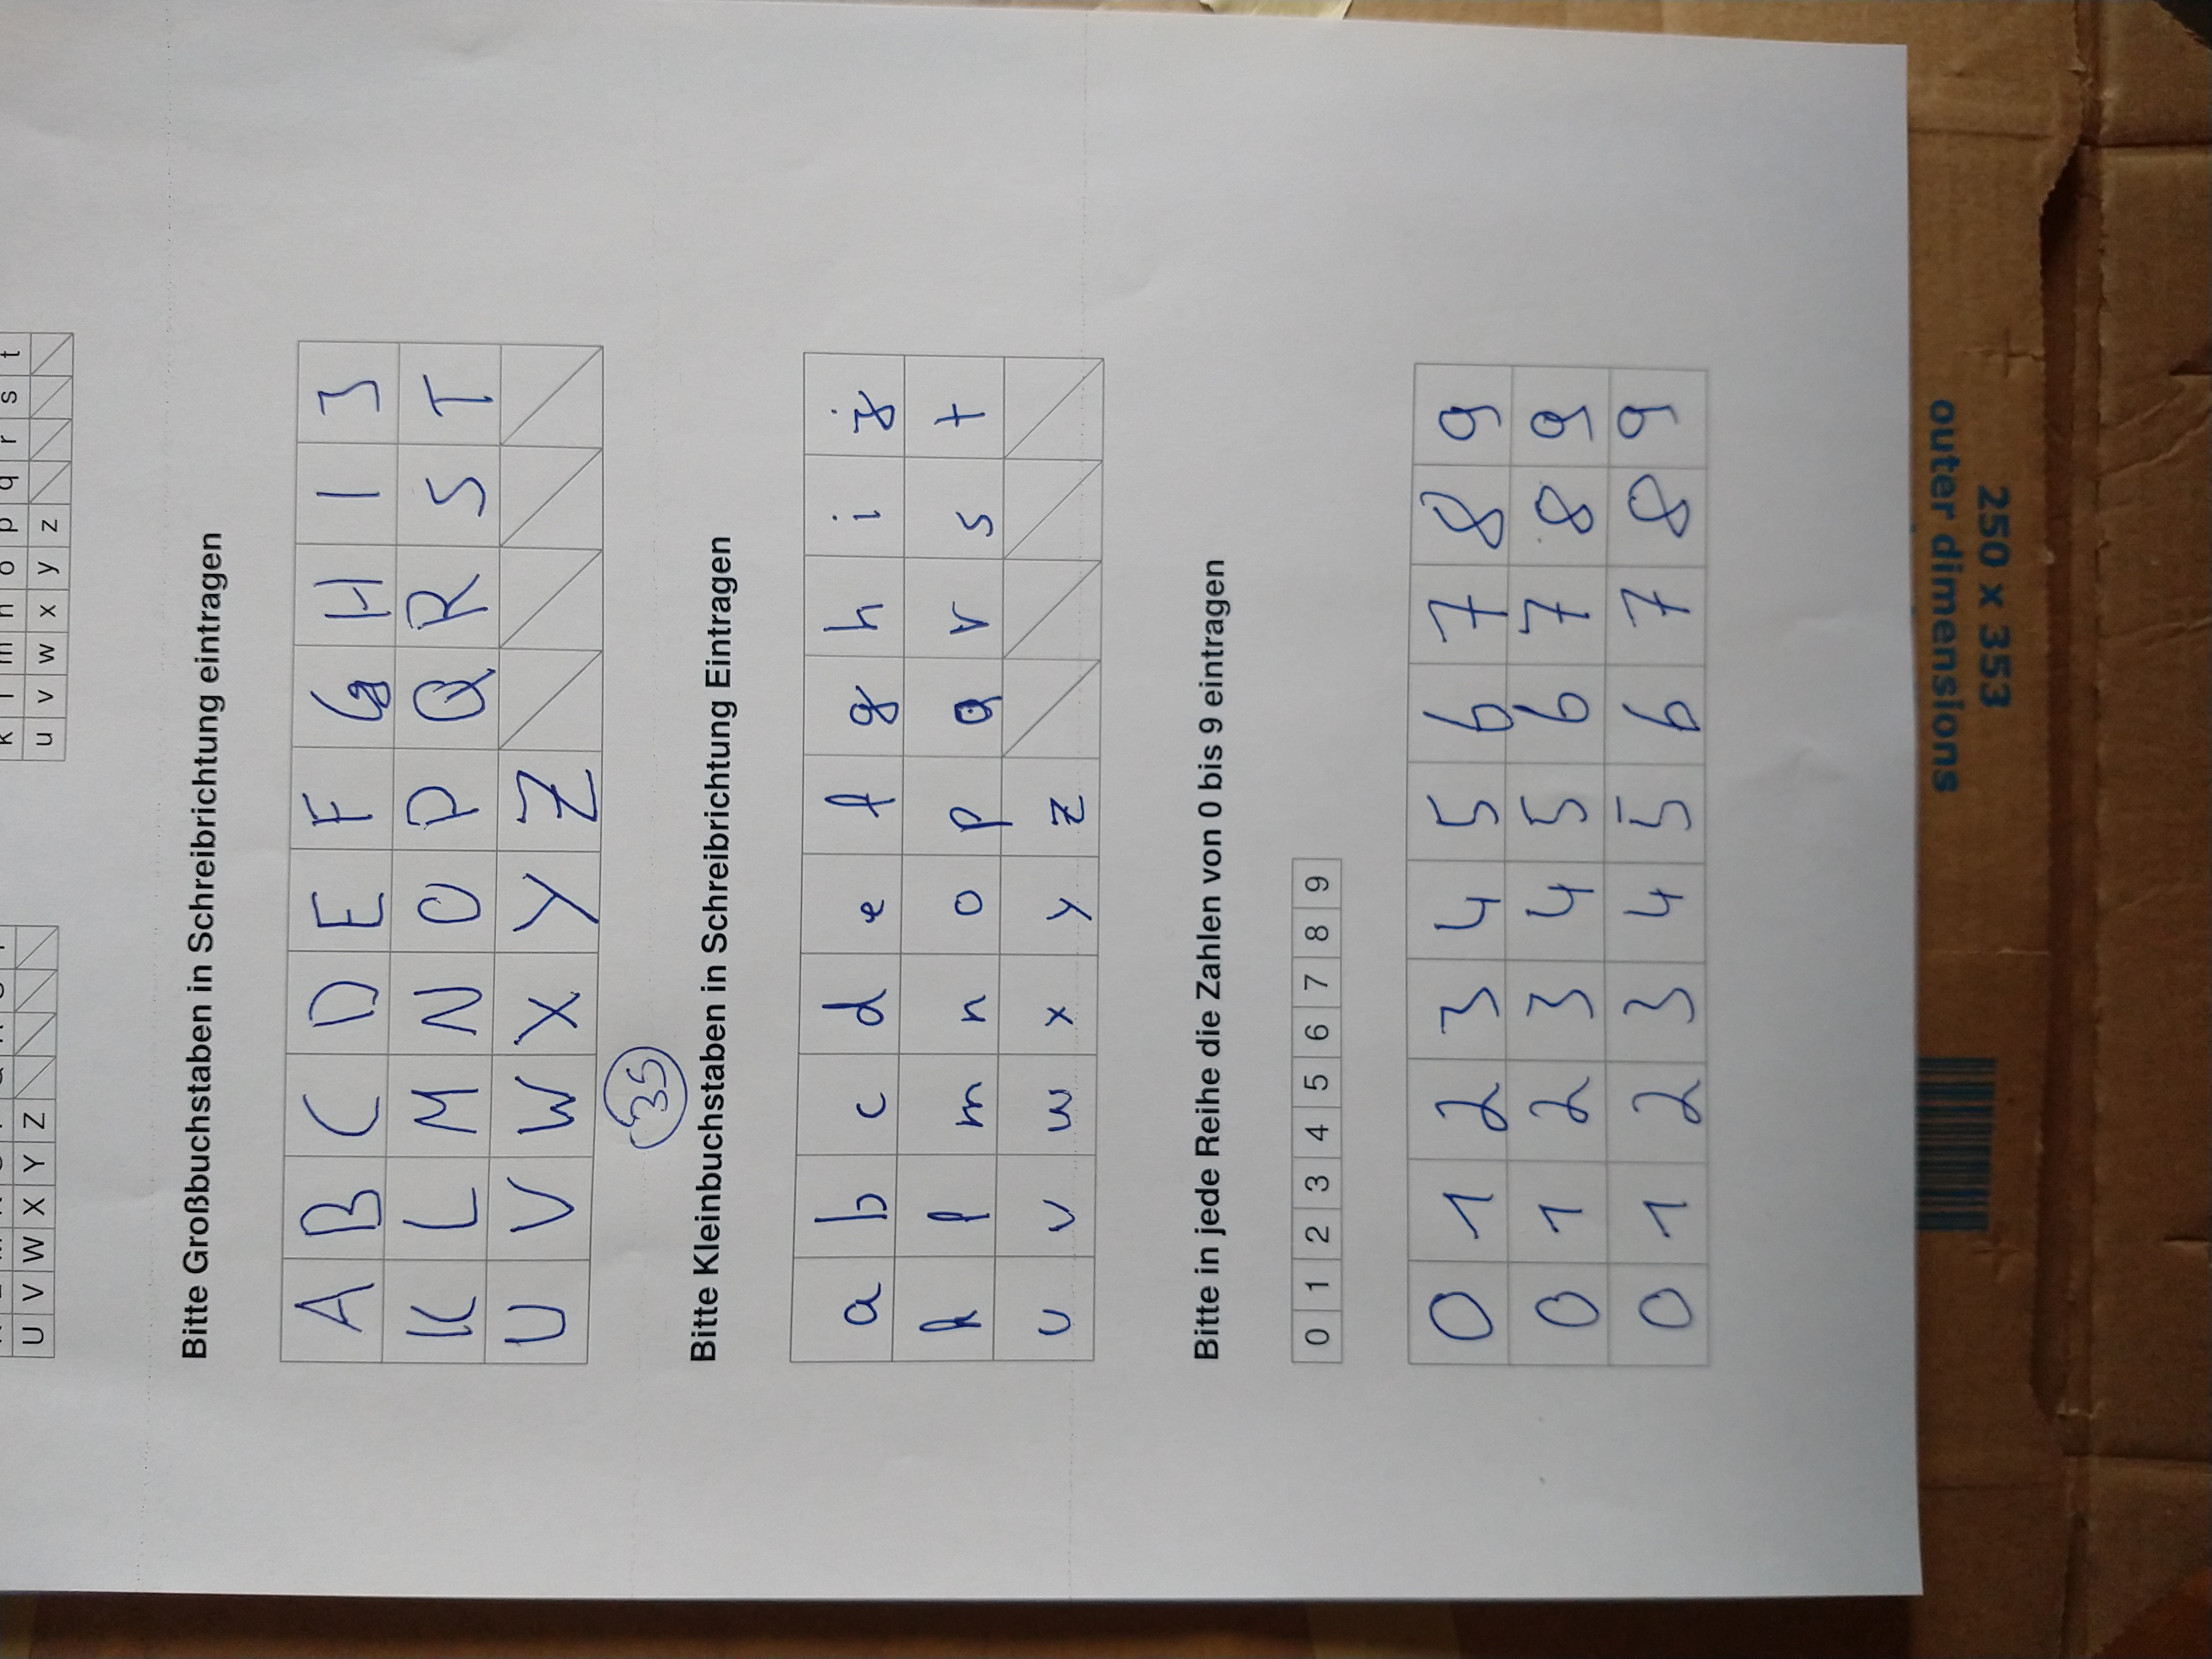 K L M N O P Q R S T
U V W X Y Z
k l m n o p q r s t
u v w x y z
Bitte Großbuchstaben in Schreibrichtung eintragen
A B C D E F G H I J
K L M N O P Q R S T
U V W X Y Z
35
Bitte Kleinbuchstaben in Schreibrichtung Eintragen
a b c d e f g h i j
k l m n o p q r s t
u v w x y z
Bitte in jede Reihe die Zahlen von 0 bis 9 eintragen
0 1 2 3 4 5 6 7 8 9
0 1 2 3 4 5 6 7 8 9
0 1 2 3 4 5 6 7 8 9
0 1 2 3 4 5 6 7 8 9
250 x 353
outer dimensions